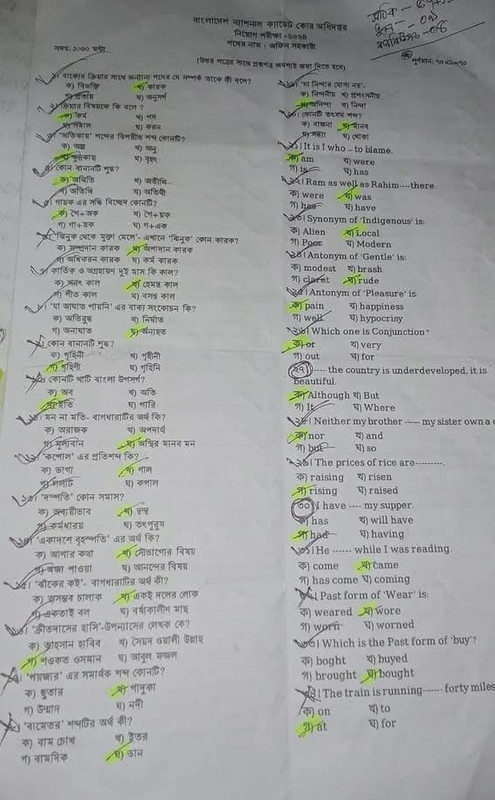 বাংলাদেশ ন্যাশনাল ক্যাডেট কোর অধিদপ্তর
নিয়োগ পরীক্ষা -২০২৪
পদের নাম : অফিস সহকারী
সময়: ১:৩০ ঘন্টা
পূর্ণমান: ৭০
(উত্তর পত্রের সাথে প্রশ্নপত্র অবশ্যই জমা দিতে হবে)
১। বাক্যের ক্রিয়ার সাথে অন্যান্য পদের যে সম্পর্ক তাকে কী বলে?
ক) বিভক্তি খ) কারক
গ) প্রত্যয় ঘ) অনুসর্গ
২। ক্রিয়ার বিষয়কে কি বলে ?
ক) কর্ম খ) পদ
গ) সমাস ঘ) করন
শব্দের বিপরীত শব্দ কোনটি?
ক) অল্প খ) অনু
গ) ক্ষুদ্রকায় ঘ) বৃহৎ
৪। কোন বানানটি শুদ্ধ?
৫। গায়ক এর সন্ধি বিচ্ছেদ কোনটি?
ক) গৈ+অক খ) গৈ+য়ক
গ) গা+য়ক ঘ) গ+এক
৬। ঝিনুক থেকে মুক্তা মেলে'- এখানে 'ঝিনুক' কোন কারক?
ক) সম্প্রদান কারক খ) অপাদান কারক
গ) অধিকরন কারক ঘ) কর্ম কারক
৭। কার্তিক ও অগ্রহায়ণ দুই মাস কি কাল?
ক) শরৎ কাল খ) হেমন্ত কাল
গ) শীত কাল ঘ) বসন্ত কাল
৮। 'যা আঘাত পায়নি' এর বাক্য সংকোচন কি?
গ) অনাঘাত ঘ) অনাহত
৯। কোন বানানটি শুদ্ধ?
১০। কোনটি খাটি বাংলা উপসর্গ?
ক) অব খ) অতি
গ) ইতি ঘ) পরি
১১। মন না মতি- বাগধারাটির অর্থ কি?
ক) অরাজক খ) অপদার্থ
গ) মূল্যবান ঘ) অস্থির মানব মন
১২। 'কপোল' এর প্রতিশব্দ কি?
ক) ভাগ্য খ) গাল
গ) ললাট ঘ) কপাল
১৩। 'দম্পতি' কোন সমাস?
ক) অব্যয়ীভাব খ) দ্বন্দ্ব
গ) কর্মধারয় ঘ) তৎপুরুষ
১৪। 'একাদশে বৃহস্পতি' এর অর্থ কি?
ক) আশার কথা খ) সৌভাগ্যের বিষয়
গ) মজা পাওয়া ঘ) আনন্দের বিষয়
১৫। 'ঝাঁকের কই'- বাগধারাটির অর্থ কী?
ক) অসম্ভব চালাক খ) একই দলের লোক
গ) একতাই বল ঘ) বর্ষাকালীন মাছ
১৬। 'ক্রীতদাসের হাসি'-উপন্যাসের লেখক কে?
ক) আহসান হাবিব খ) সৈয়দ ওয়ালী উল্লাহ
গ) শওকত ওসমান ঘ) আবুল ফজল
১৭। 'পয়জার' এর সমার্থক শব্দ কোনটি?
ক) ছুতার খ) পাদুকা
গ) উন্মাদ ঘ) নদী
১৮। 'বামেতর' শব্দটির অর্থ কী?
ক) বাম চোখ খ) ইতর
গ) বামদিক ঘ) ডান
১৯। 'যা নিন্দার যোগ্য নয়'-
ক) নিন্দনীয় খ) প্রশংসনীয়
গ) অনিন্দ্য ঘ) নিন্দা
২০। কোনটি তৎসম শব্দ?
২১। It is I who – to blame.
ক) am খ) were
গ) is ঘ) has
২২। Ram as well as Rahim....there.
ক) were খ) was
গ) has ঘ) have
২৩। Synonym of 'Indigenous' is:
ক) Alien খ) Local
গ) Poor ঘ) Modern
২৪। Antonym of 'Gentle' is:
ক) modest খ) brash
গ) claret ঘ) rude
২৫। Antonym of 'Pleasure' is
ক) pain খ) happiness
গ) well ঘ) hypocrisy
২৬। Which one is Conjunction?
ক) or খ) very
গ) out ঘ) for
২৭। .... the country is underdeveloped, it is
beautiful.
ক) Although খ) But
গ) It ঘ) Where
২৮। Neither my brother ---- my sister own a
ক) nor খ) and
গ) but ঘ) so
২৯। The prices of rice are---------.
ক) raising খ) risen
গ) rising ঘ) raised
৩০। I have .... my supper.
ক) has খ) will have
গ) had ঘ) having
৩১। He ...... while I was reading.
ক) come খ) came
গ) has come ঘ) coming
৩২। Past form of 'Wear' is:
ক) weared খ) wore
গ) worn ঘ) worned
৩৩। Which is the Past form of 'buy'?
ক) boght খ) buyed
গ) brought ঘ) bought
৩৪। The train is running------- forty miles
ক) on খ) to
গ) at ঘ) for